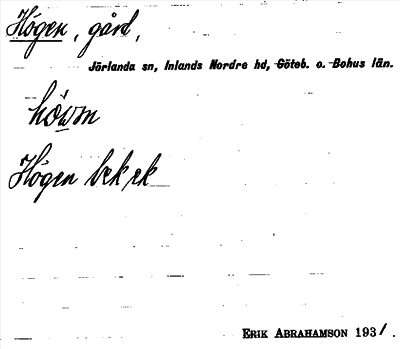 Högen, gård,
Jörlanda sn, Inlands Nordre hd, Göteb. o. Bohus län.
Högen bek ek
ERIK ABRAHAMSON 1931.